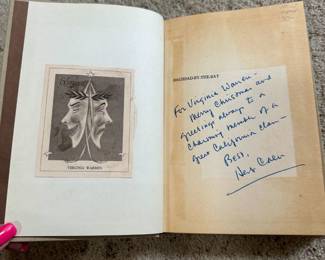 VIRGINIA WARREN
BAGHDAD-BY-THE-BAY
For Virginia Warren -
Merry Christmas and
greetings always to a
charming member of a
great California clan -
Best,
Herb Caen